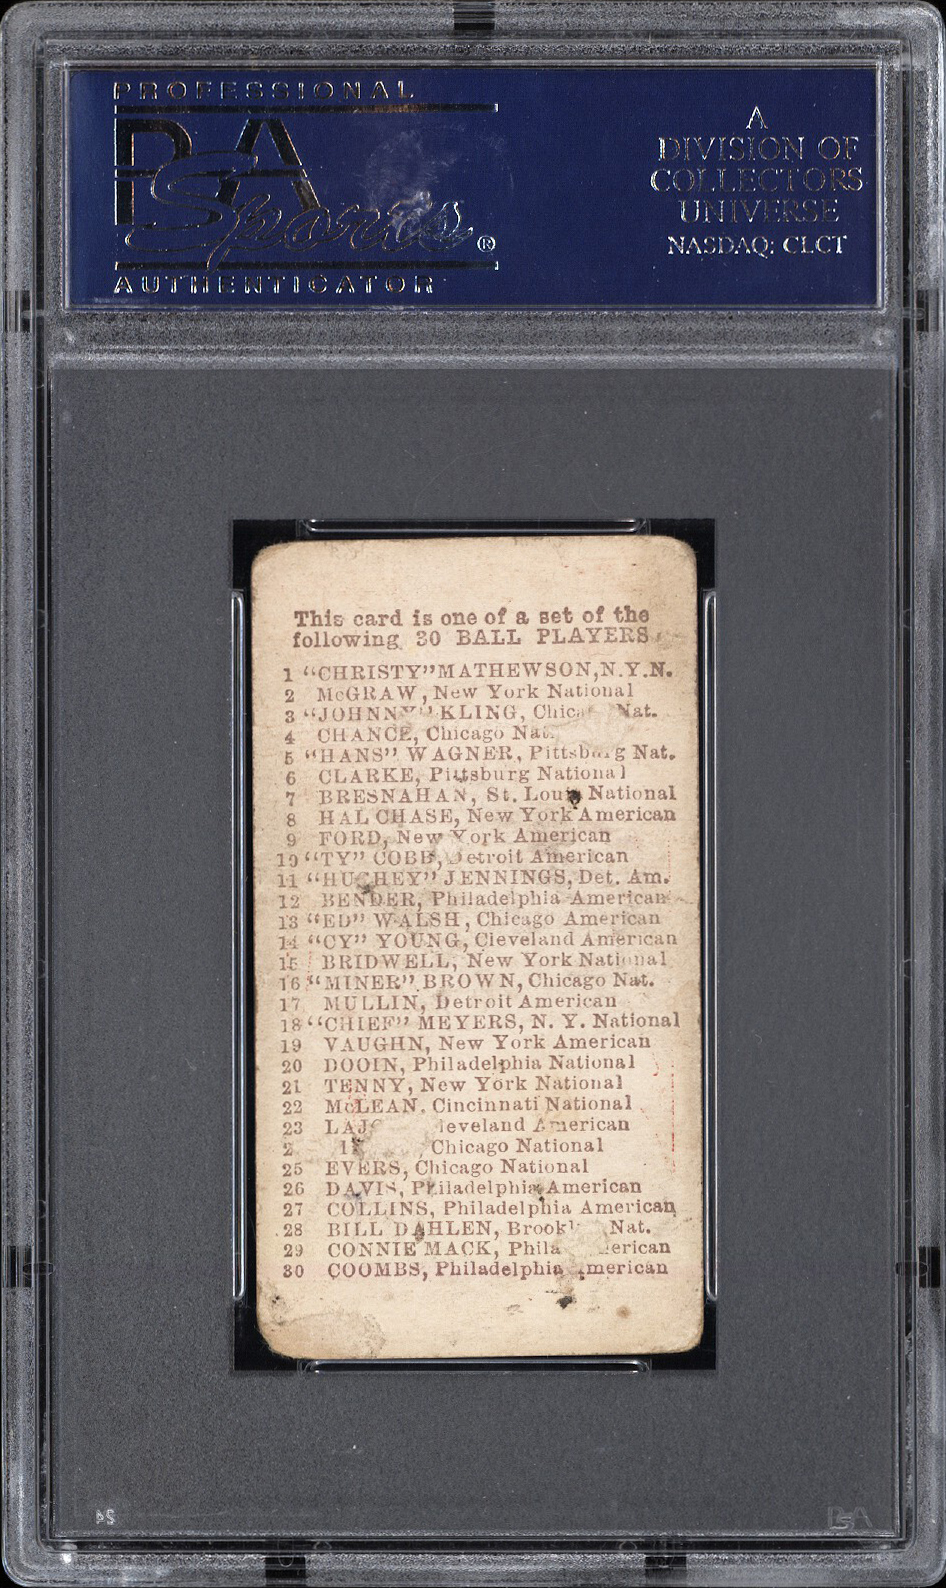 PROFESSIONAL
PSA
Sports ®
AUTHENTICATOR
A
DIVISION OF
COLLECTORS
UNIVERSE
NASDAQ: CLCT
This card is one of a set of the
following 30 BALL PLAYERS
1 "CHRISTY" MATHEWSON, N.Y.N.
2 McGRAW, New York National
3 "JOHNNY" KLING, Nat.
4 CHANCE, Chicago Nat.
5 "HANS" WAGNER, Pittsburg Nat.
6 CLARKE, Pittsburg National
7 BRESNAHAN, St. Louis National
8 HAL CHASE, New York American
9 FORD, New York American
10 "TY" COBB, Detroit American
11 "HUGHEY" JENNINGS, Det. Am.
12 BENDER, Philadelphia American
13 "ED" WALSH, Chicago American
14 "CY" YOUNG, Cleveland American
15 BRIDWELL, New York National
16 "MINER" BROWN, Chicago Nat.
17 MULLIN, Detroit American
18 "CHIEF" MEYERS, N. Y. National
19 VAUGHN, New York American
20 DOOIN, Philadelphia National
21 TENNY, New York National
22 McLEAN, Cincinnati National
23 American
Chicago National
25 EVERS, Chicago National
26 DAVIS, Philadelphia American
27 COLLINS, Philadelphia American
28 BILL DAHLEN, Nat.
29 CONNIE MACK,
30 COOMBS, Philadelphia American
PSA